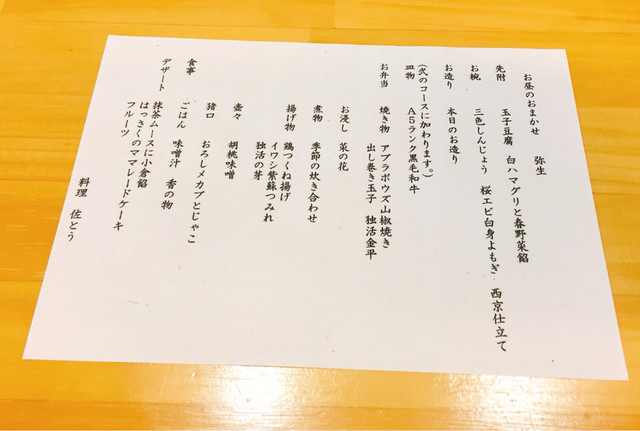 お昼のおまかせ　弥生
先附　玉子豆腐　白ハマグリと春野菜餡
お椀　三色しんじょう　桜エビ白身よもぎ　西京仕立て
お造り　本日のお造り
(弐のコースに加わります。)
皿物　A5ランク黒毛和牛
お弁当　焼き物　アブラボウズ山椒焼き
出し巻き玉子　独活金平
お浸し　菜の花
煮物　季節の炊き合わせ
揚げ物　鶏つくね揚げ
イワシ紫蘇つみれ
独活の芽
壷々　胡桃味噌
猪口　おろしメカブとじゃこ
食事　ごはん　味噌汁　香の物
デザート　抹茶ムースに小倉餡
はっさくのママレードケーキ
フルーツ
料理　佐とう